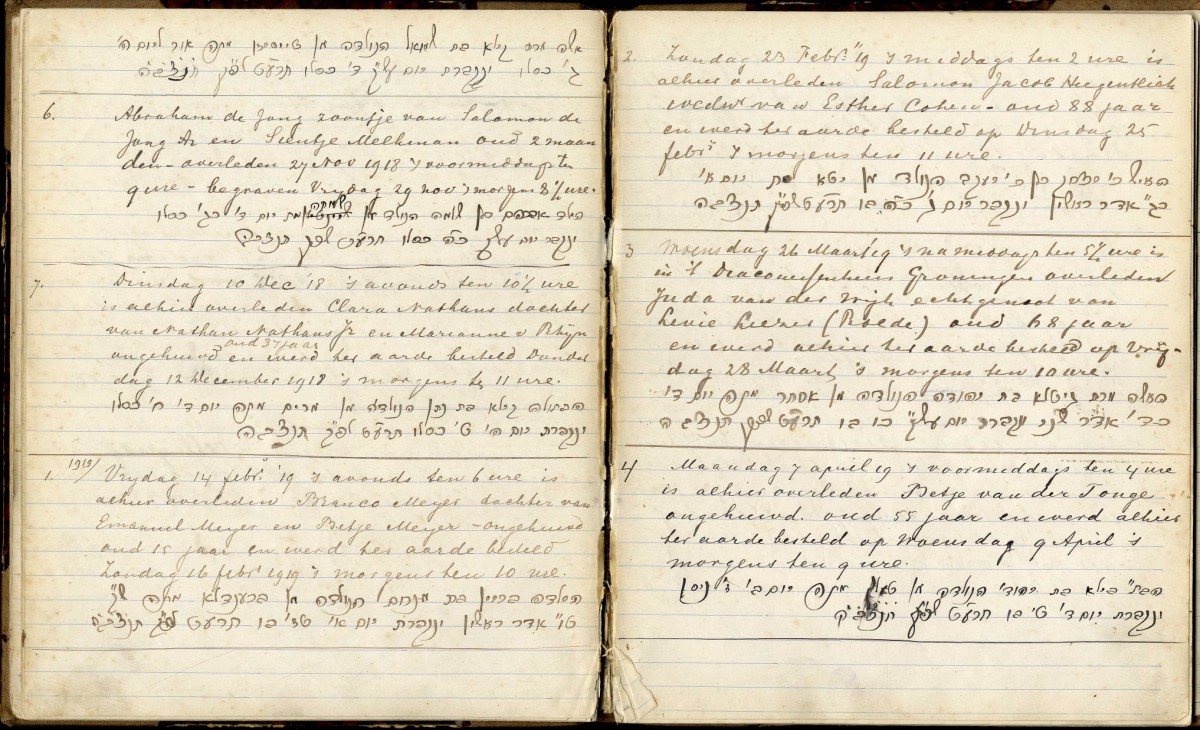 אשה מרת גיטא בת שמואל הנולדה מן מתה אור ליום ה'
ג' כסלו ונקברת יום עש"ק ד' כסלו תרע"ט לפ"ק תנצב"ה
6. Abraham de Jong zoontje van Salomon de
Jong Az en Sientje Melkman oud 2 maan
den - overleden 27 Nov 1918 's voormiddags ten
9 ure - begraven Vrydag 29 Nov 's morgens 8½ ure.
הילד אברהם בן שלמה הנולד מן מת יום ד' כג' כסלו
ונקבר יום עש"ק כ"ה כסלו תרע"ט לפ"ק תנצב"ה
7. Dinsdag 10 Dec '18 's avonds ten 10½ ure
is alhier overleden Clara Nathans dochter
van Nathan Nathans Jz en Marianne v Rhyn
oud 37 jaar
ongehuwd en werd ter aarde besteld Donder
dag 12 December 1918 's morgens te 11 ure.
הבתולה גיטא בת נתן הנולדה מן מרים מתה יום ד' ח' כסלו
ונקברת יום ה' ט' כסלו תרע"ט לפ"ק תנצב"ה
1919/
1. Vrydag 14 febr. '19 's avonds ten 6 ure is
alhier overleden Branco Meyer dochter van
Emanuel Meyer en Betje Meyer - ongehuwd
oud 15 jaar en werd ter aarde besteld
Zondag 16 febr 1919 's morgens ten 10 ure.
הילדה בת מנחם הנולדה מן ברענדלא מתה ש"ק
ט"ו אדר ראשון ונקברת יום א' טז' בו תרע"ט לפ"ק תנצב"ה
2. Zondag 23 Febr. '19 's middags ten 2 ure is
alhier overleden Salomon Jacob Neegentlich
wedr van Esther Cohen - oud 88 jaar
en werd ter aarde besteld op Dinsdag 25
febr. 's morgens ten 11 ure.
האיש ר' בן ר' יעקב הנולד מן יטא מת יום א'
כג" אדר ראשון ונקבר יום ג' כ"ה בו תרע"ט לפ"ק תנצב"ה
3 Woensdag 26 Maart '19 's namiddags ten 5½ ure is
in 't Diaconessenhuis Groningen overleden
Juda van der Wyk echtgenoot van
Levie Liezer (Roede.) oud 68 jaar
en werd alhier ter aarde besteld op Vrij-
dag 28 Maart 's morgens ten 10 ure.
האשה מרת גיטלא בת יהודה הנולדה מן אסתר מתה יום ד'
כד' אדר שני ונקברת יום עש"ק כו בו תרע"ט לפ"ק תנצב"ה
4 Maandag 7 april 19 's voormiddags ten 4 ure
is alhier overleden Betje van der Tonge
ongehuwd. oud 55 jaar en werd alhier
ter aarde besteld op Woensdag 9 April 's
morgens ten 9 ure.
הבת" בילא בת יהודי הנולדה מן מתה יום ב' ז' ניסן
ונקברת יום ד' ט' בו תרע"ט לפ"ק תנצב"ה